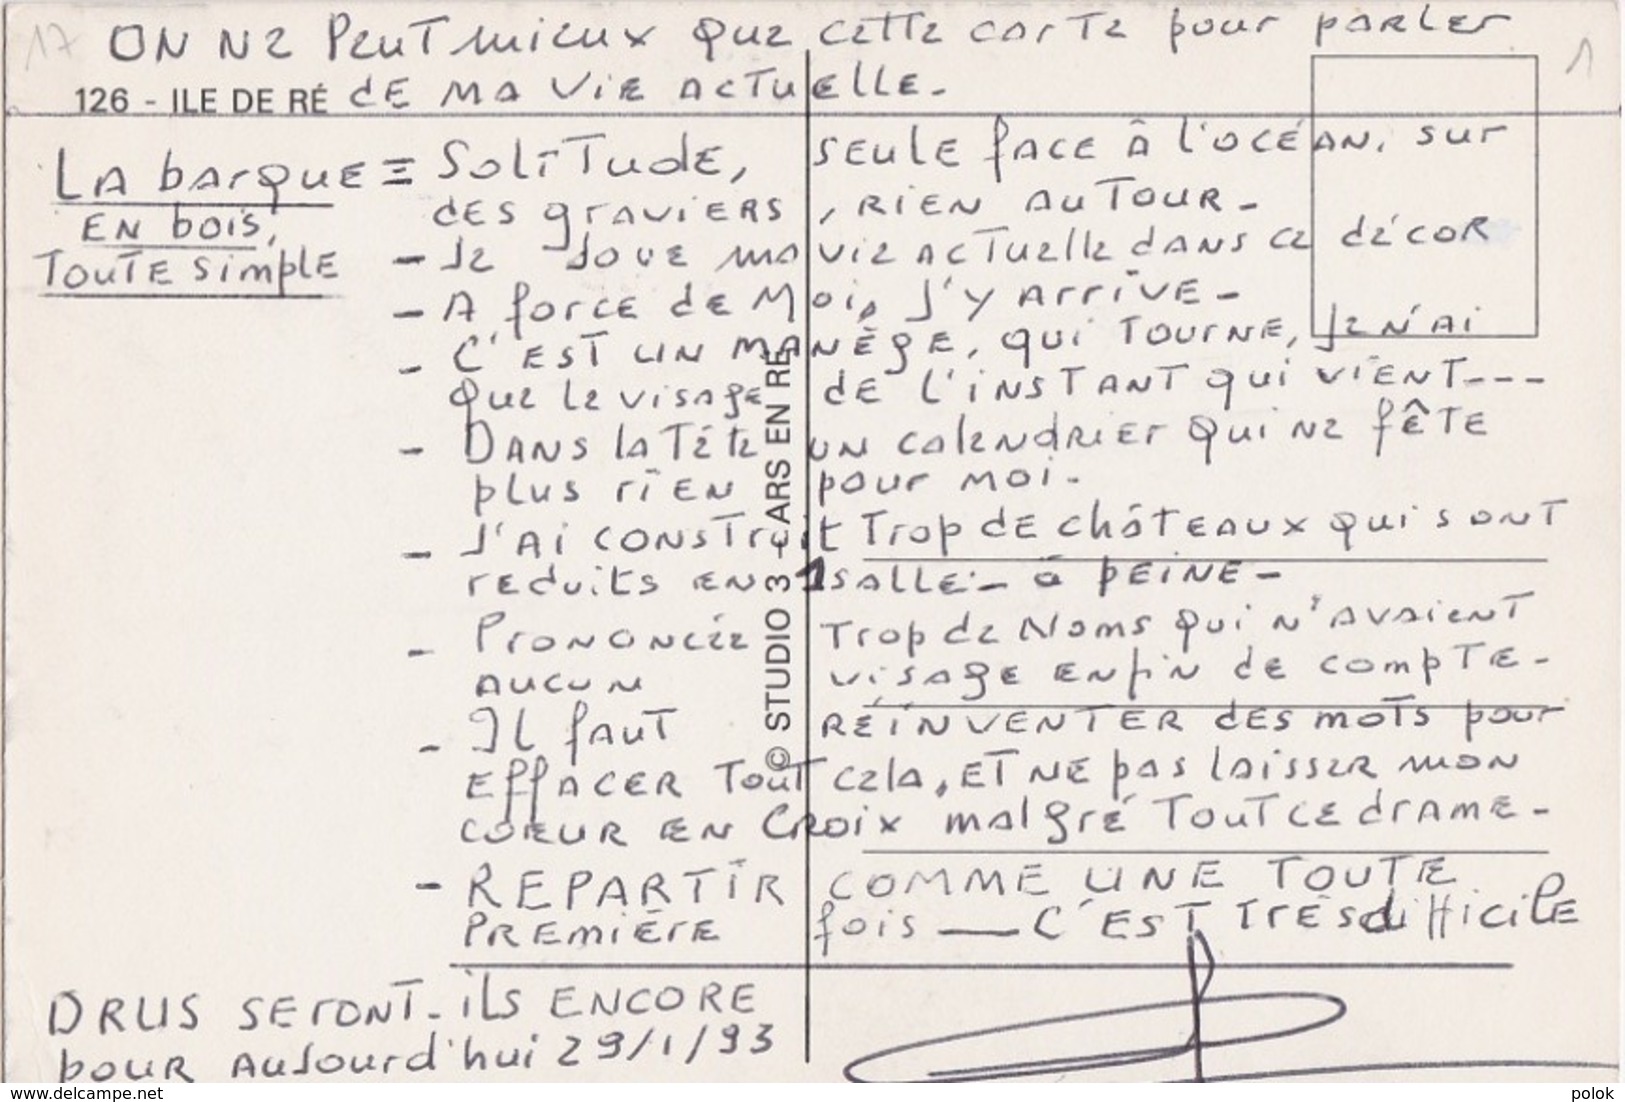 17 ON NE PEUT mieux que cette carte pour parler 1
126 - ILE DE RÉ de ma vie actuelle.
La barque = Solitude, seule face à l'océan, sur
en bois, des graviers, rien autour -
toute simple - Je joue ma vie actuelle dans ce décor
- A force de moi, j'y arrive -
- C'est un manège, qui tourne, je n'ai
que le visage de l'instant qui vient---
- Dans la tête un calendrier qui ne fête
plus rien pour moi.
- J'ai construit trop de châteaux qui sont
réduits en 1 salle - à peine -
- Prononcée trop de Noms qui n'avaient
aucun visage enfin de compte -
- Il faut réinventer des mots pour
effacer tout cela, et ne pas laisser mon
coeur en Croix malgré tout ce drame -
- REPARTIR COMME UNE TOUTE
PREMIÈRE fois — C'EST très difficile
DRUS SERONT-ILS ENCORE
pour aujourd'hui 29/1/93
© STUDIO 3 - ARS EN RÉ
www.delcampe.net
polok